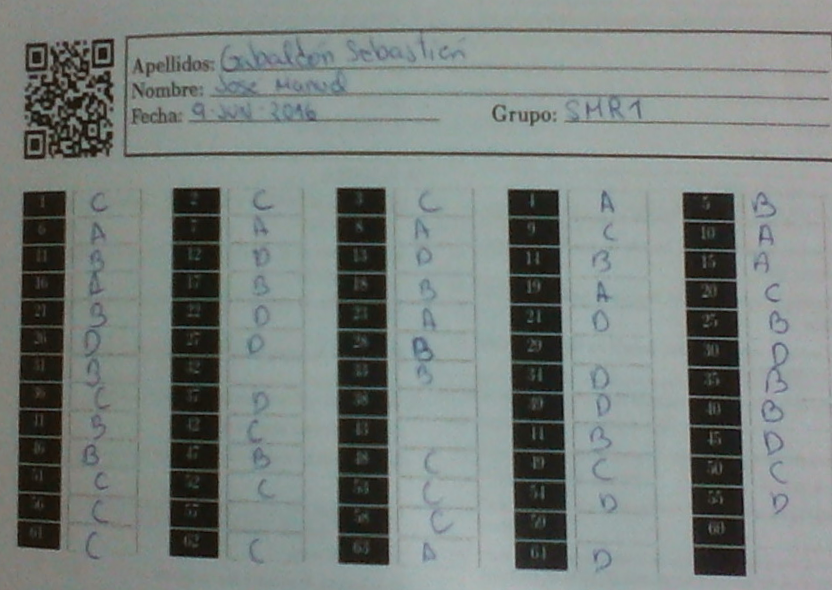 Apellidos: Gabaldón Sebastián
Nombre: Jose Manuel
Fecha: 9-JUN-2016 Grupo: SMR1
1 C 2 C 3 C 4 A 5 B
6 A 7 A 8 A 9 C 10 A
11 B 12 D 13 D 14 B 15 A
16 A 17 B 18 B 19 A 20 C
21 B 22 D 23 A 24 D 25 B
26 D 27 D 28 B 29 30 D
31 B 32 33 B 34 D 35 B
36 C 37 D 38 39 D 40 B
41 B 42 C 43 44 B 45 D
46 B 47 B 48 C 49 C 50 C
51 C 52 C 53 C 54 D 55 D
56 C 57 58 C 59 60
61 C 62 C 63 A 64 D